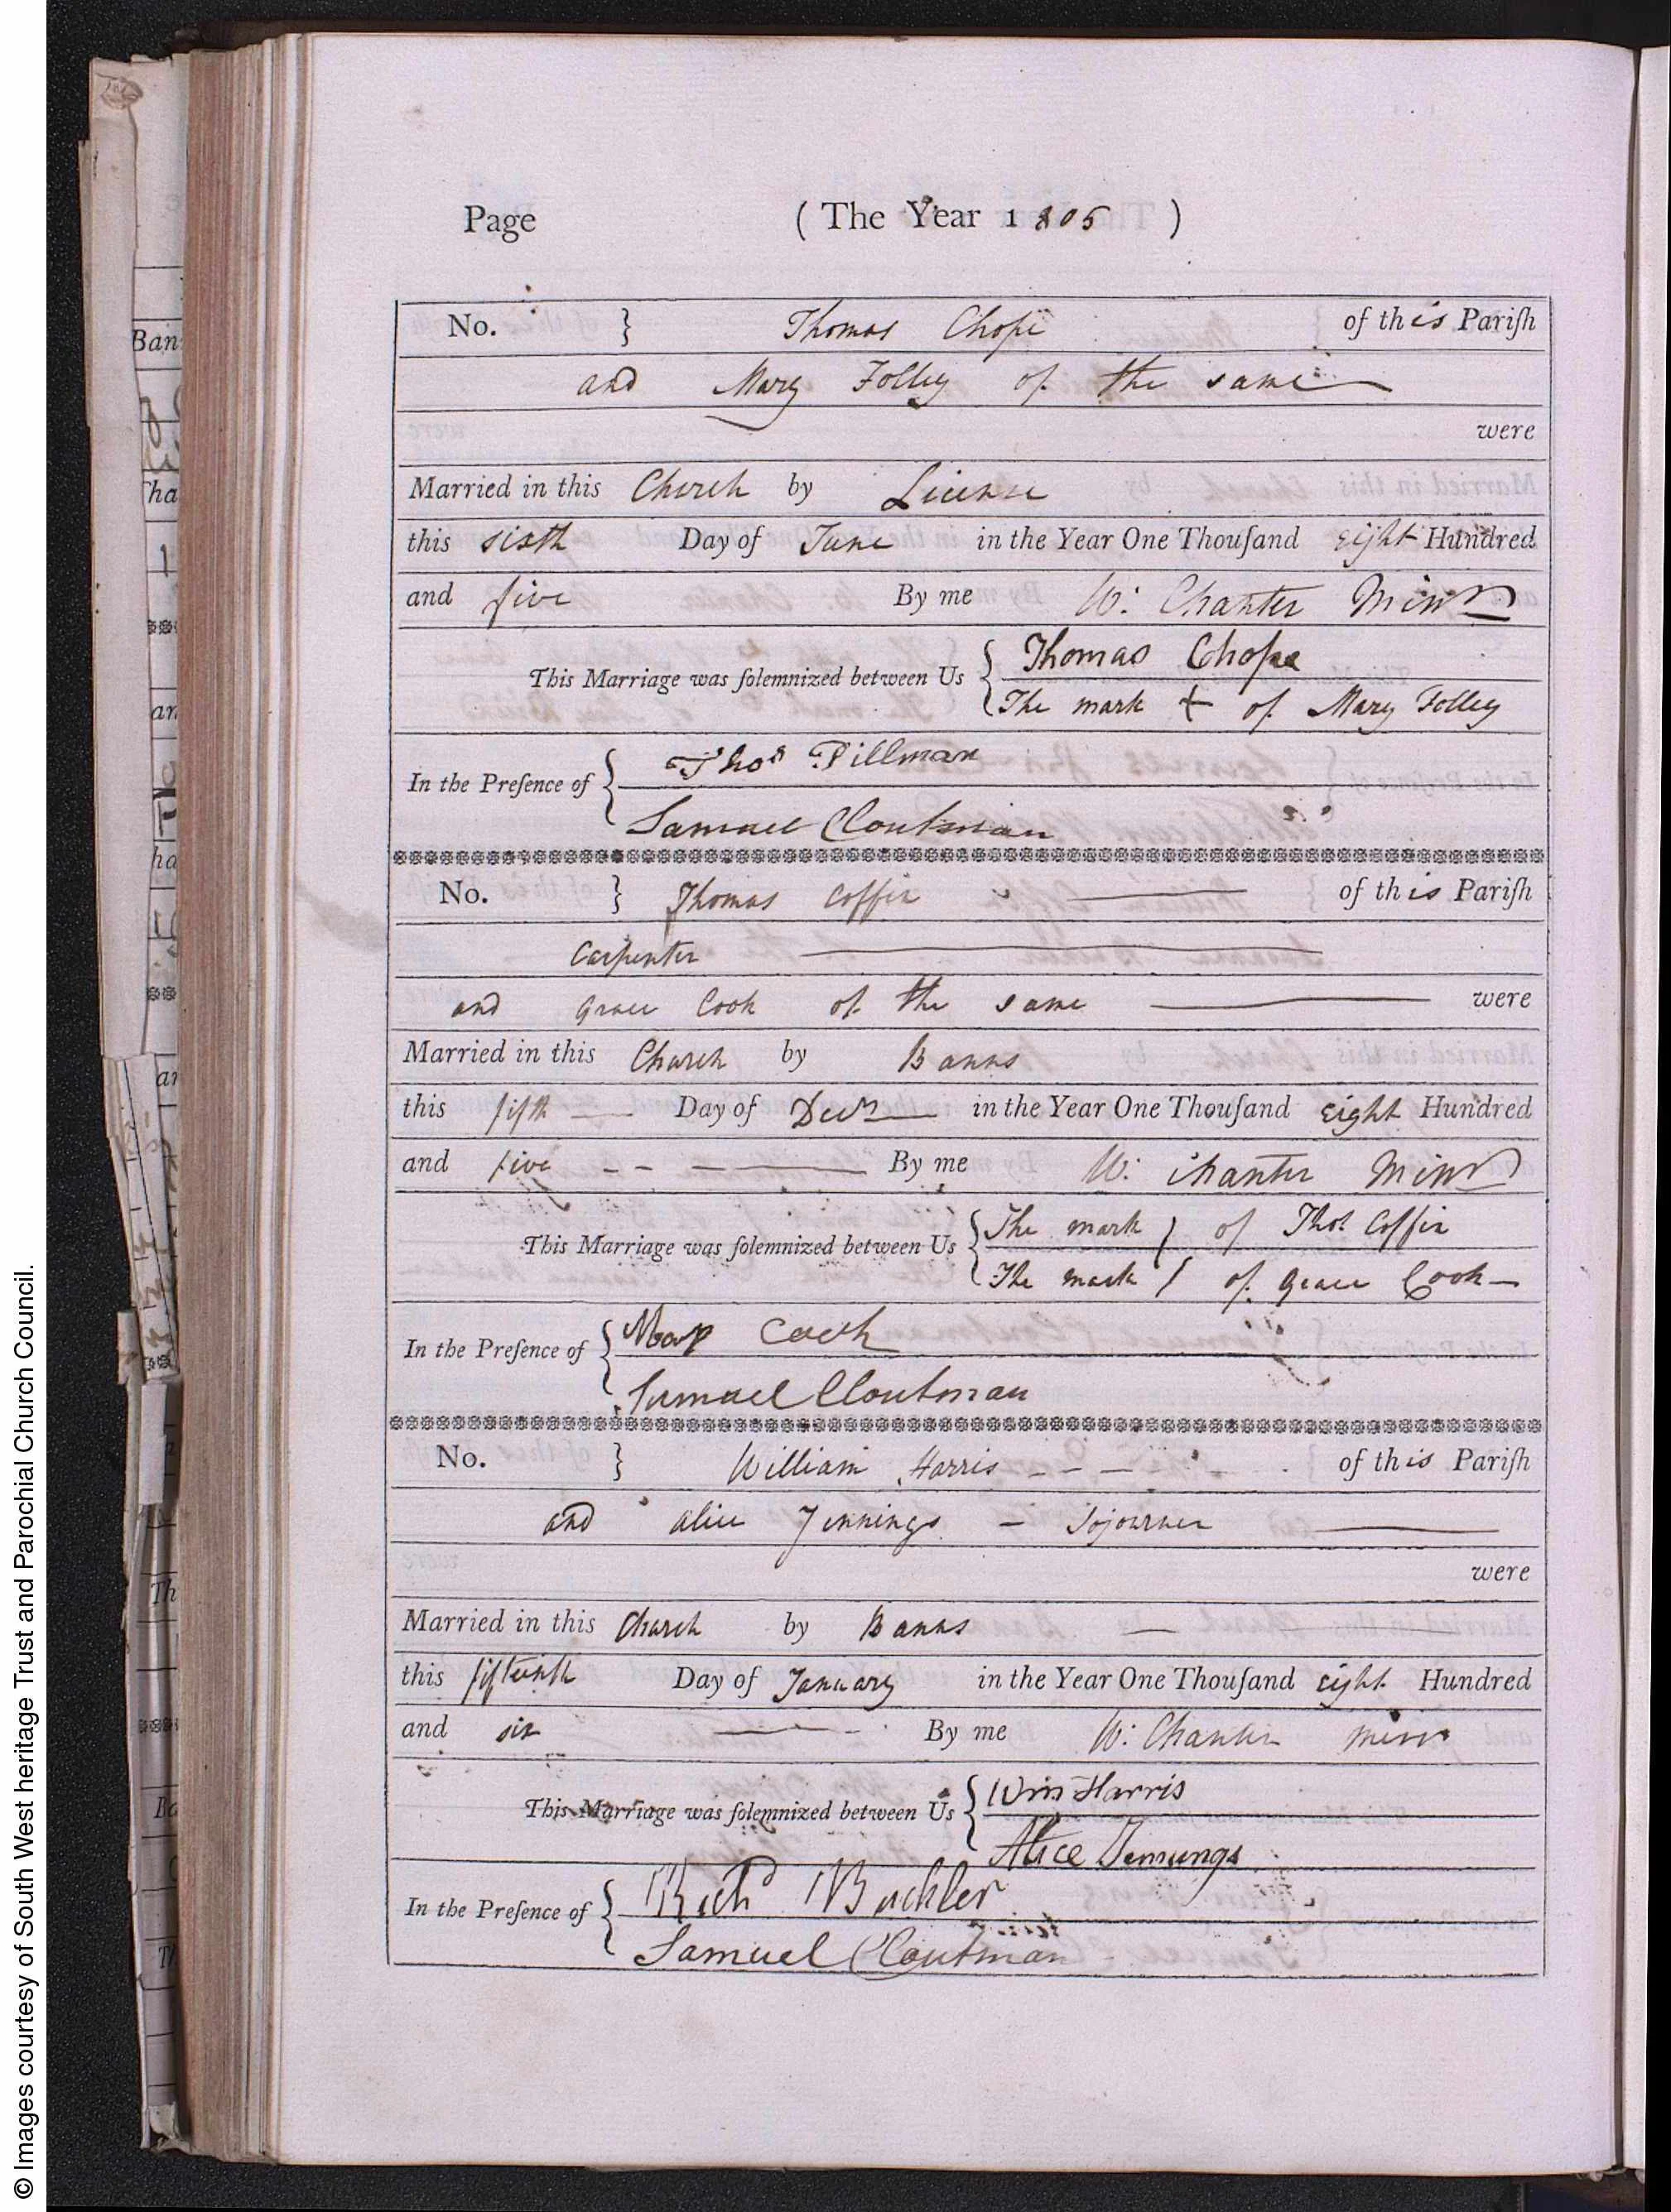 Page (The Year 1805)
No. } Thomas Chope of this Pariſh
and Mary Folley of the same
were
Married in this Church by Licence
this sixth Day of June in the Year One Thouſand eight Hundred
and five By me W: Chanter Minr
This Marriage was ſolemnized between Us { Thomas Chope
The mark + of Mary Folley
In the Preſence of { Thos Pillman
Samuel Cloutman
No. } Thomas Coffin of this Pariſh
Carpenter
and Grace Cook of the same were
Married in this Church by Banns
this fifth Day of Decr in the Year One Thouſand eight Hundred
and five By me W: Chanter Minr
This Marriage was ſolemnized between Us { The mark of Thos Coffin
The mark of Grace Cook
In the Preſence of {
Samuel Cloutman
No. } William Harris of this Pariſh
and Alice Jennings - Sojourner
were
Married in this Church by Banns
this fifteenth Day of January in the Year One Thouſand eight Hundred
and six By me W: Chanter Minr
This Marriage was ſolemnized between Us { Wm Harris
Alice Jennings
In the Preſence of { Richd Buckler
Samuel Cloutman
© Images courtesy of South West heritage Trust and Parochial Church Council.